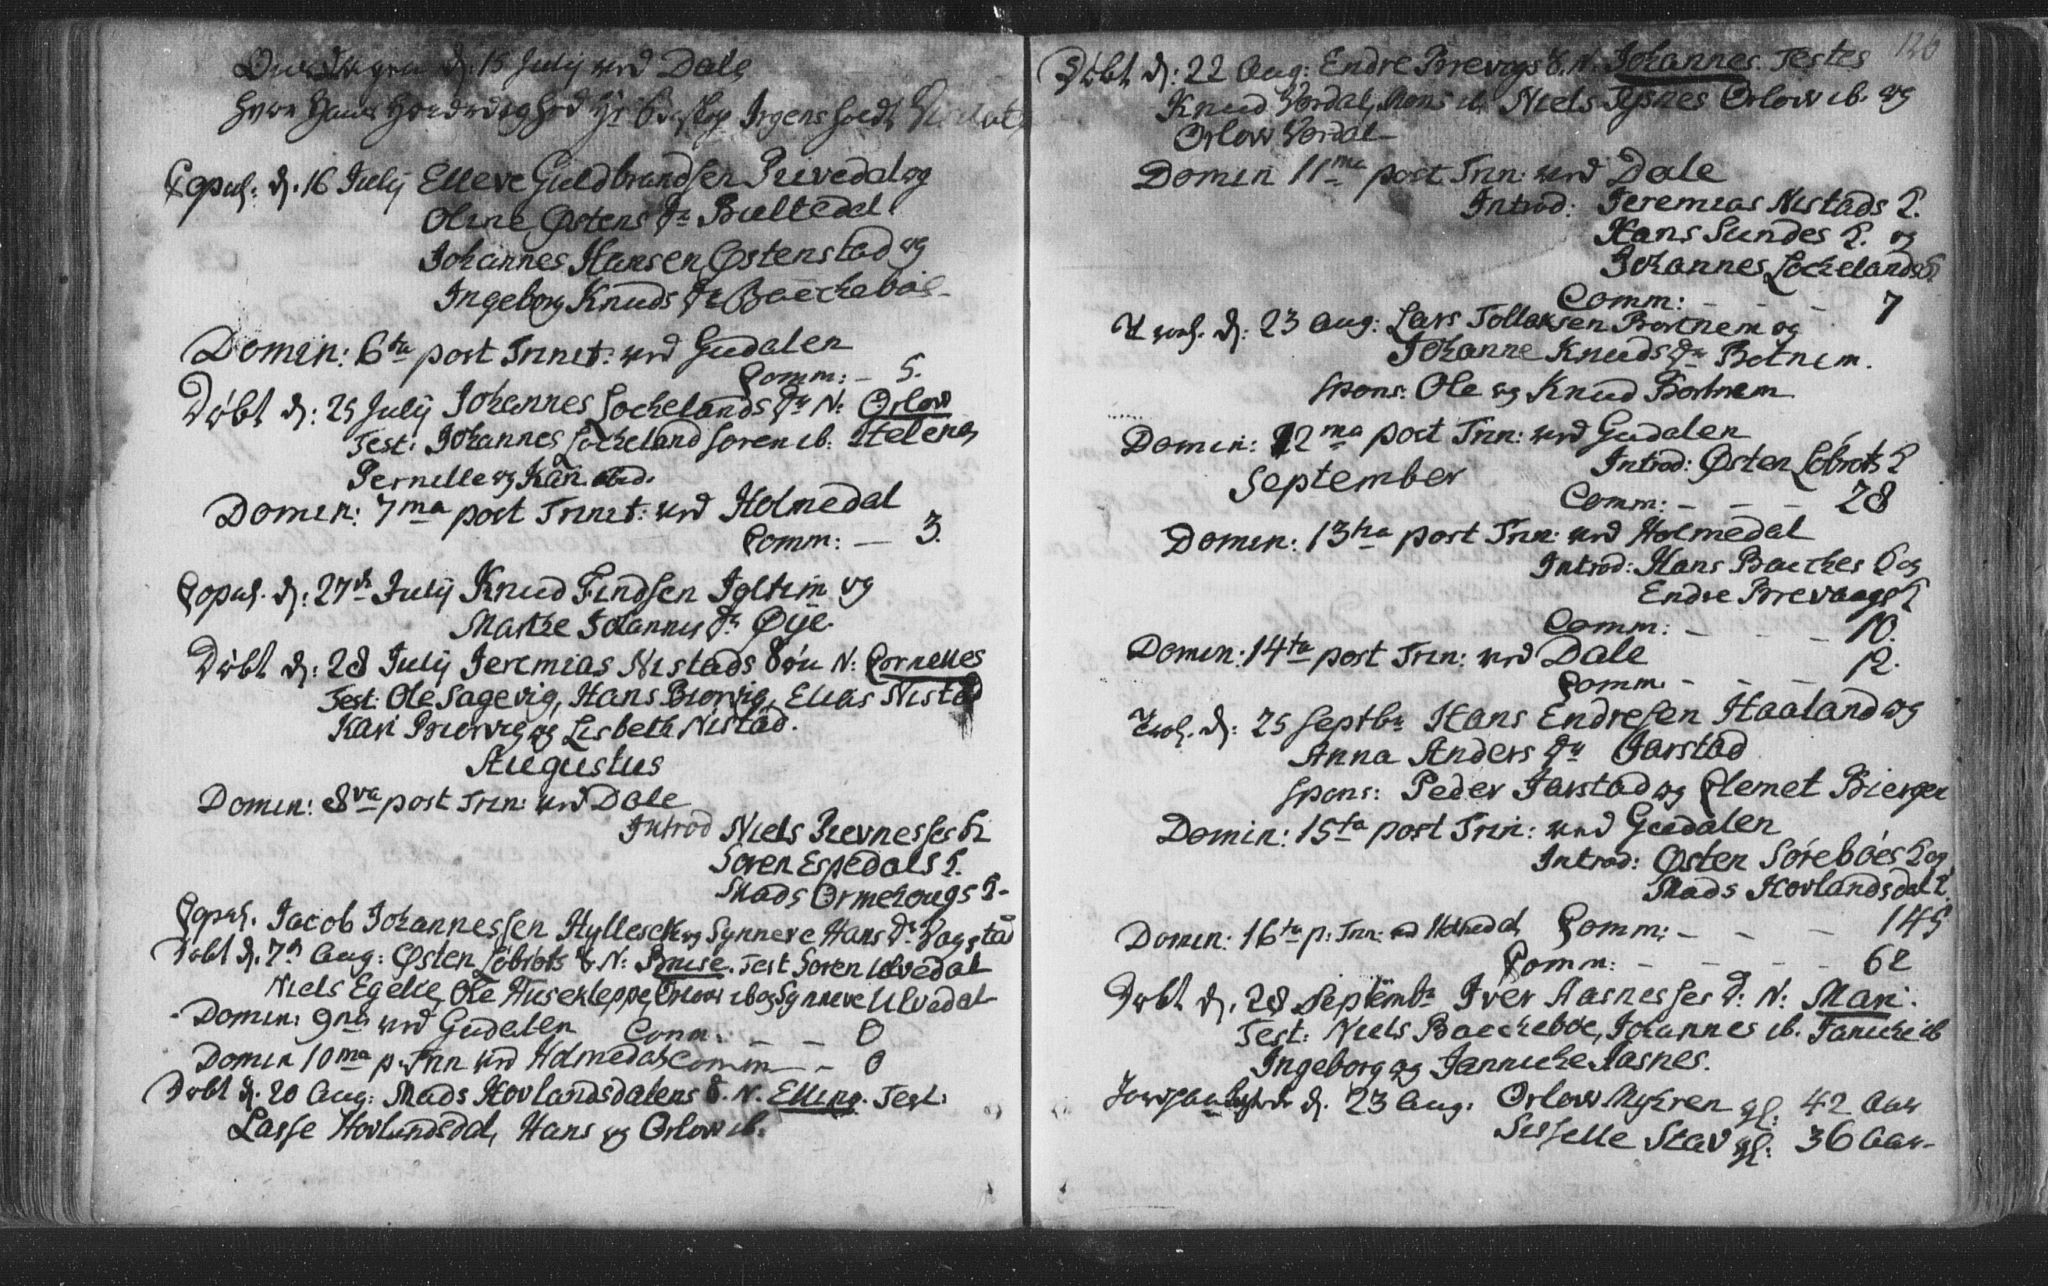 Onsdagen d. 15 July ved Dale
Hans Høiærværdighed Hr Biskop Irgens holdt Visitatz
Copul: d. 16 July Elleve Guldbrandsen Rivedal og
Oline Østens Dr Bultedal
Johannes Hansen Østenstad og
Ingeborg Knuds Dr Baeckeboe
Domin: 6ta post Trinit: ved Gudalen
Comm: - 5.
Døbt d: 25 July Johannes Lockelands Dr N: Orlow
Test: Johannes Lockeland Soren ib: Helene
Pernille og Kari ibid.
Domin: 7ma post Trinit: ved Holmedal
Comm: - 3.
Copul. d: 27de July Knud Findsen Igltun og
Marthe Johannes Dr Øije.
Døbt d: 28 July Jeremias Nistads Søn N: Cornelles
Test: Ole Sagevig, Hans Biorvig, Elias Nistad
Kari Biorvig og Lisbeth Nistad.
Augustus
Domin: 8va post Trin: ved Dale
Introd Niels Rievneses H
Soren Espedals H.
Mads Ormehougs H-
Copul. Jacob Johannessen Hyllesek og Synneve Hans Dr Vagstad
Døbt d. 7de Aug: Østen Løbrots S N: Bruse. Test Soren Ulvedal
Niels Egelie, Ole Husekleppe, Orlow ib og Synneve Ulvedal
Domin: 9na ved Gudalen Comm: - - 0
Domin 10ma p. Trin ved Holmedal Comm - 0
Døbt d. 20 Aug: Mads Hovlandsdalens S. N. Elling. Test:
Lasse Hovlandsdal, Hans og Orlow ib.
126
Døbt d: 22 Aug: Endre Brevogs S. N. Johannes. Testes
Knud Vordal, Mons ib. Niels Tysnes Orlow ib. og
Orlow Vordal
Domin 11ma post Trin: ved Dale
Introd: Jeremias Nistads H.
Hans Sundes H. og
Johannes Lockelands H.
Comm: - - - 7
Trol. d: 23 Aug: Lars Tollaksen Bortnem og
Johanne Knuds Dr Botnem.
Spons: Ole og Knud Bortnem
Domin: 12ma post Trin: ved Gudalen
September Introd: Østen Løbrots H
Comm: - - - 28
Domin: 13tia post Trin: ved Holmedal
Introd: Hans Baeckes H og
Endre Brevaags H
Comm: - - - 10.
Domin: 14ta post Trin: ved Dale
Comm. - - - 12.
Trol. d: 25 Septbr Hans Endresen Haaland og
Anna Anders Dr Jarstad
Spons: Peder Jarstad og Clemet Bierger
Domin: 15ta post Trin: ved Gudalen
Introd: Østen Søreboes H og
Mads Hovlandsdal H.
Comm: - - - 145
Domin: 16ta p: Trin: ved Holmedal
Comm: - - - - 62
Døbt d. 28 Septembr Iver Aasneses D: N: Mari.
Test: Niels Baeckeboe, Johannes ib. Janicke ib
Ingeborg og Jannicke Aasnes.
d. 23 Aug: Orlow Myhren gl: 42 Aar
Sisselle Stav gl: 36 Aar-